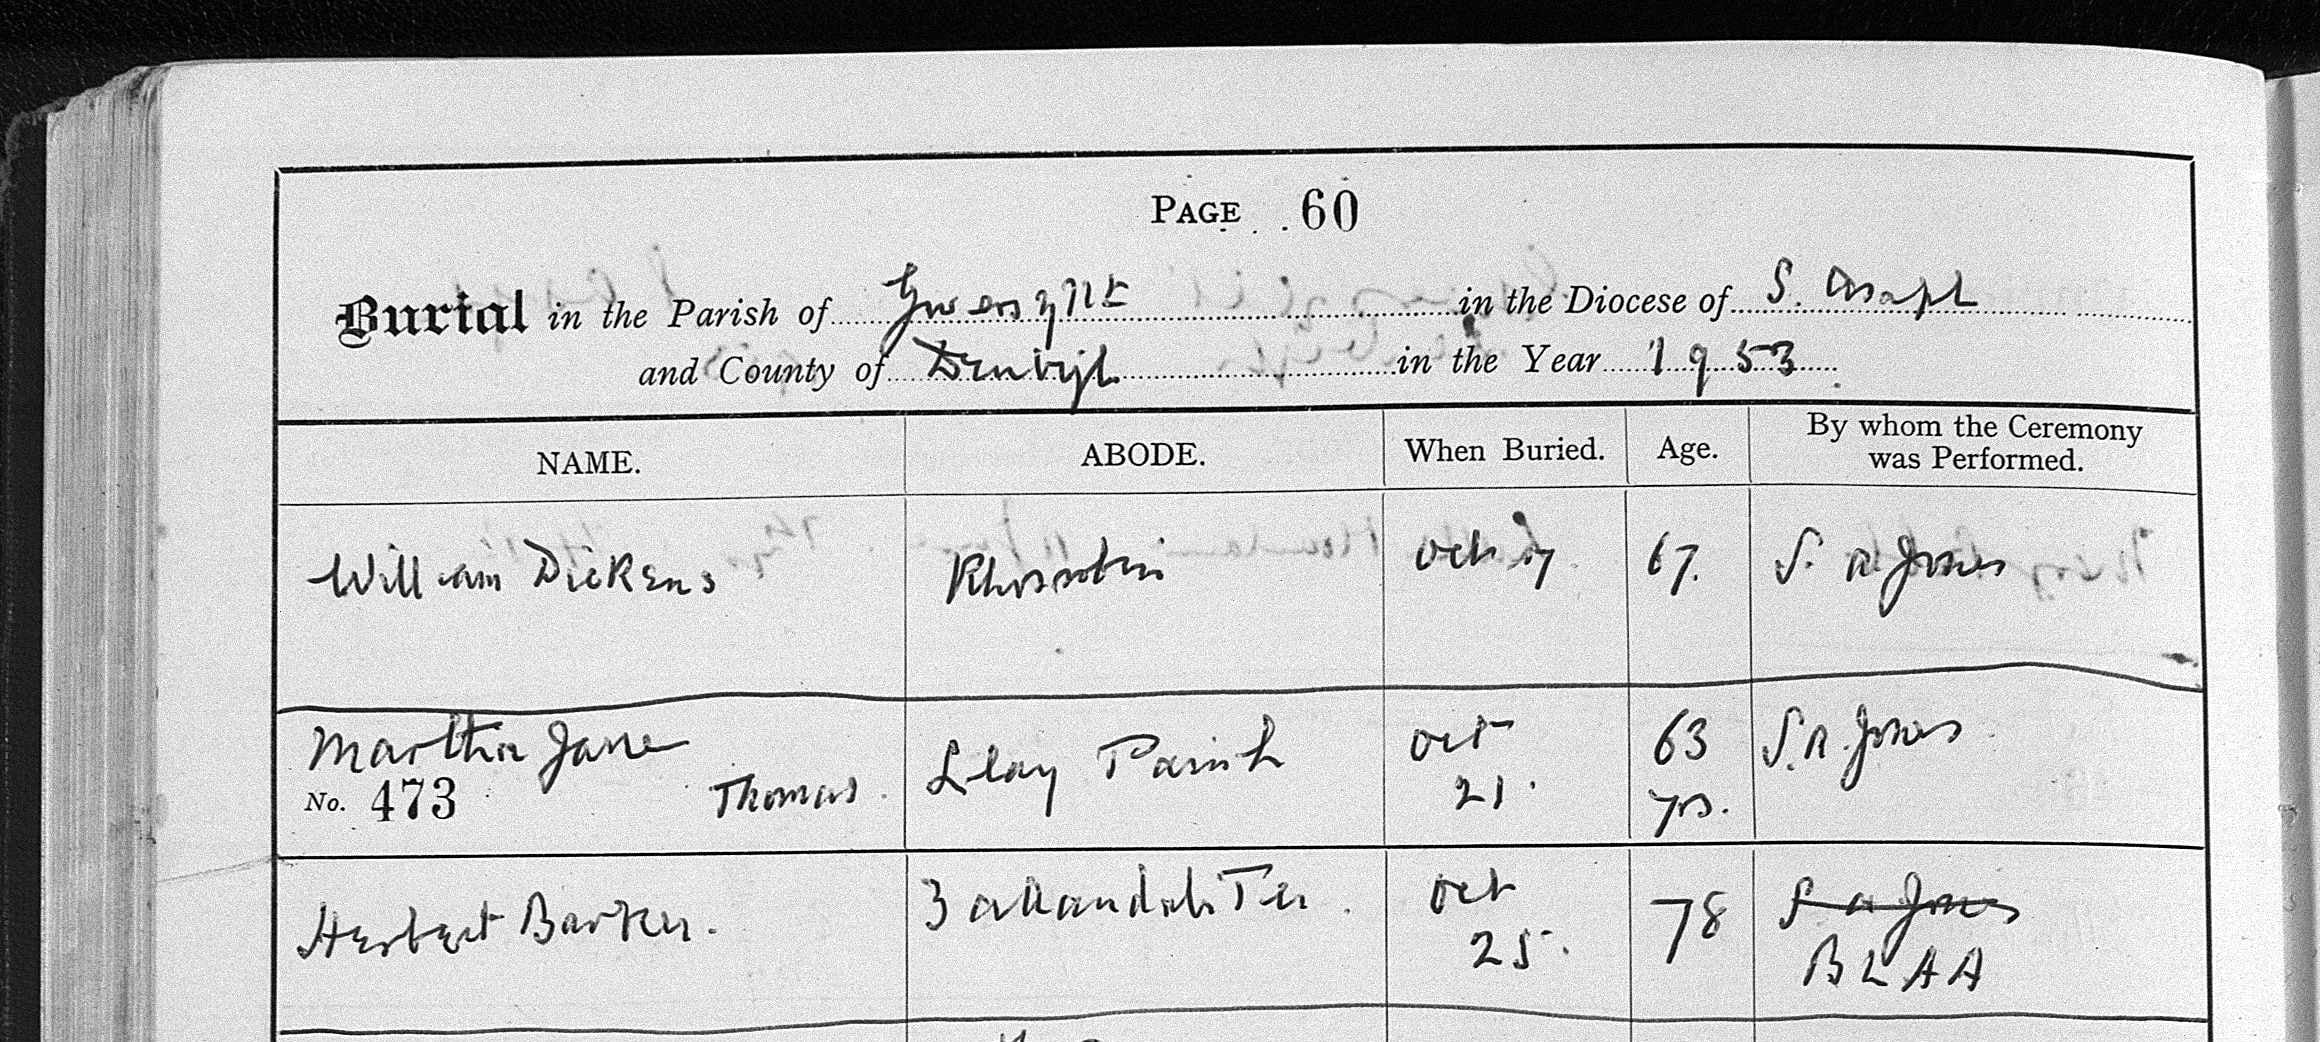 PAGE 60
Burial in the Parish of Gwersyllt in the Diocese of S. Asaph
and County of Denbigh in the Year 1953
NAME. ABODE. When Buried. Age. By whom the Ceremony was Performed.
William Dickens Rhosrobin Oct 67. S. A Jones
Martha Jane Thomas Llay Parish Oct 21. 63 yrs. S. A. Jones
No. 473
Herbert Barker. 3 Ter. Oct 25. 78 S A Jones
BLAA